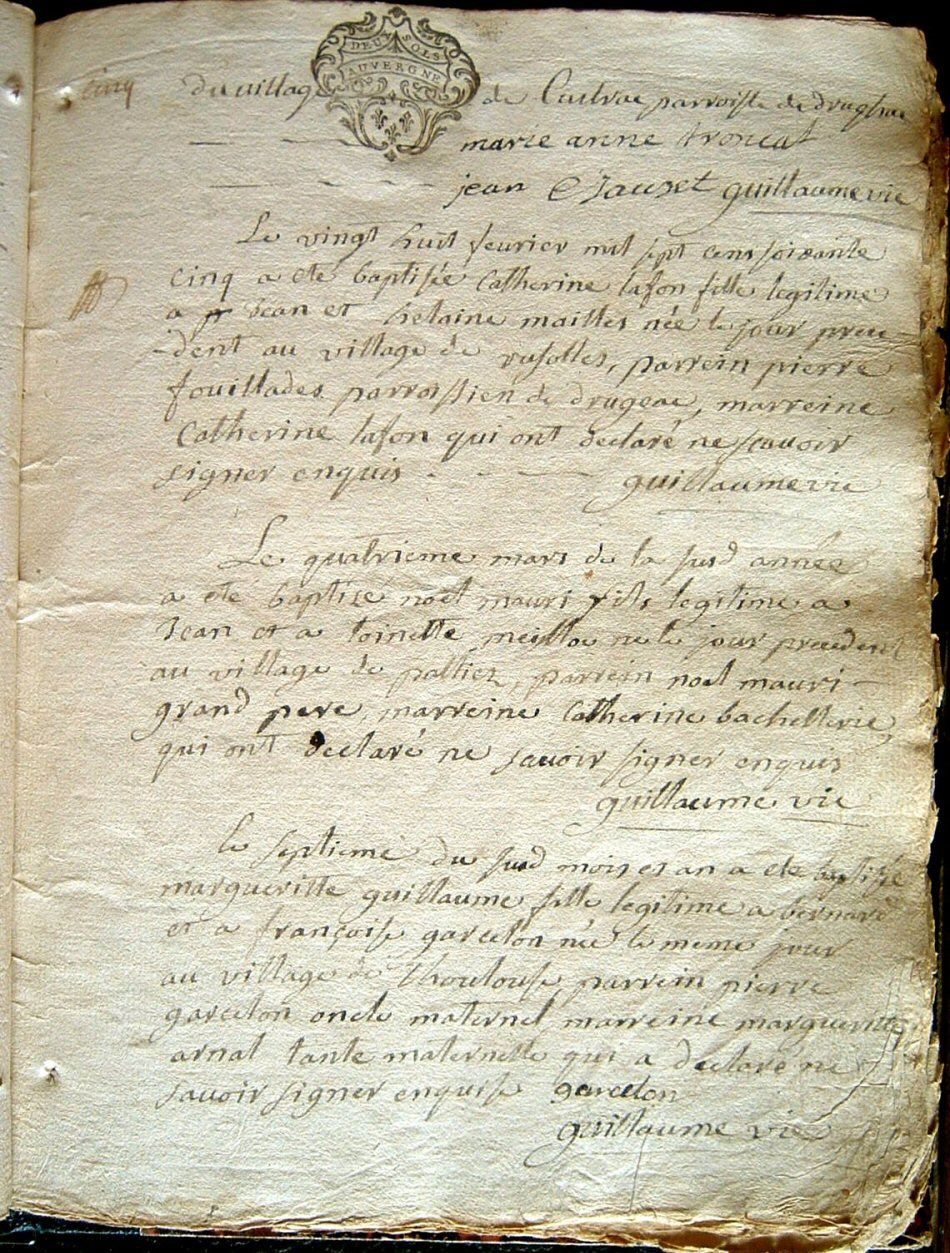 DEUX SOLS
AUVERGNE
cinq du village de parroisse de
marie anne troncat
jean guillaume vie
Le vingt huit feurier mil sept cens soixante
cinq a eté baptisée Catherine lafon fille legitime
a jean et helaine mailles née le jour prece-
dent au village de , parrein pierre
fouillades parroissien de drugeac, marreine
Catherine lafon qui ont declaré ne scauoir
signer enquis guillaume vie
Le quatrieme mars de la susd année
a eté baptizé noel mauri fils legitime a
Jean et a toinette ne le jour precedent
au village de , parrein noel mauri
grand pere, marreine Catherine bachellerie,
qui ont declaré ne sauoir signer enquis
guillaume vie
le septieme du susd mois et an a eté baptisée
margueritte guillaume fille legitime a bernard
et a françoise garcelon née le meme jour
au village de Thoulouse parrein pierre
garcelon oncle maternel marreine margueritte
arnal tante maternelle qui a declaré ne
sauoir signer enquise garcelon
guillaume vie